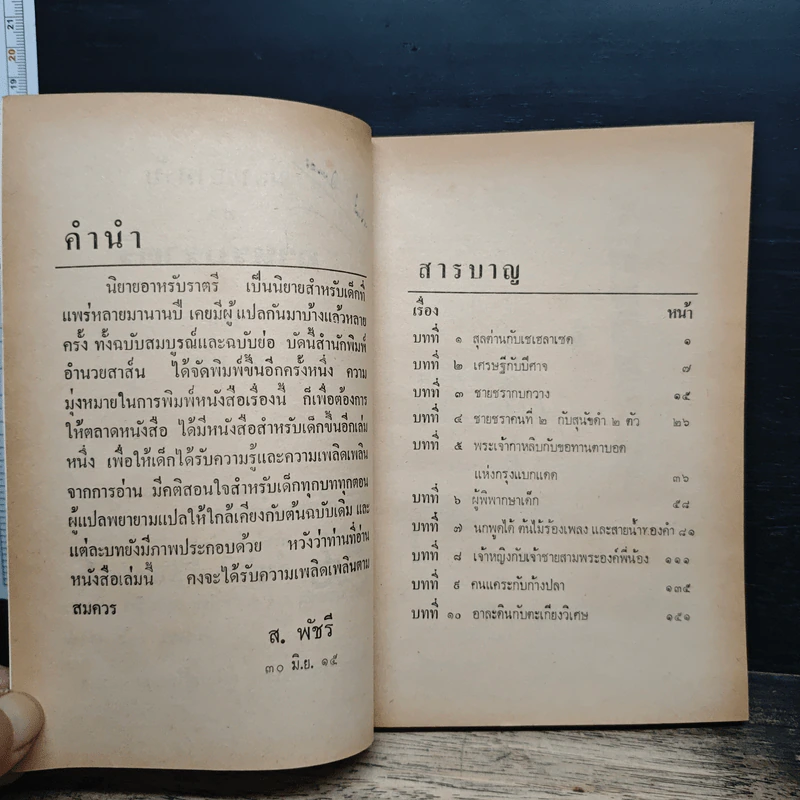 คำนำ
นิยายอาหรับราตรี เป็นนิยายสำหรับเด็กที่
แพร่หลายมานานปี เคยมีผู้แปลกันมาบ้างแล้วหลาย
ครั้ง ทั้งฉบับสมบูรณ์และฉบับย่อ บัดนี้สำนักพิมพ์
อำนวยสาส์น ได้จัดพิมพ์ขึ้นอีกครั้งหนึ่ง ความ
มุ่งหมายในการพิมพ์หนังสือเรื่องนี้ ก็เพื่อต้องการ
ให้ตลาดหนังสือ ได้มีหนังสือสำหรับเด็กขึ้นอีกเล่ม
หนึ่ง เพื่อให้เด็กได้รับความรู้และความเพลิดเพลิน
จากการอ่าน มีคติสอนใจสำหรับเด็กทุกบททุกตอน
ผู้แปลพยายามแปลให้ใกล้เคียงกับต้นฉบับเดิม และ
แต่ละบทยังมีภาพประกอบด้วย หวังว่าท่านที่อ่าน
หนังสือเล่มนี้ คงจะได้รับความเพลิดเพลินตาม
สมควร
ส. พัชรี
๓๐ มิ.ย. ๑๕
สารบาญ
เรื่อง หน้า
บทที่ ๑ สุลต่านกับเชเฮลาเซด ๑
บทที่ ๒ เศรษฐีกับปีศาจ ๗
บทที่ ๓ ชายชรากบกวาง ๑๕
บทที่ ๔ ชายชราคนที่ ๒ กับสุนัขดำ ๒ ตัว ๒๖
บทที่ ๕ พระเจ้ากาหลิบกับขอทานตาบอด
แห่งกรุงแบกแดด ๓๖
บทที่ ๖ ผู้พิพากษาเด็ก ๕๘
บทที่ ๗ นกพูดได้ ต้นไม้ร้องเพลง และสายน้ำทองคำ ๘๑
บทที่ ๘ เจ้าหญิงกับเจ้าชายสามพระองค์พี่น้อง ๑๑๑
บทที่ ๙ คนแคระกับก้างปลา ๑๓๕
บทที่ ๑๐ อาละดินกับตะเกียงวิเศษ ๑๕๑
19
20
21